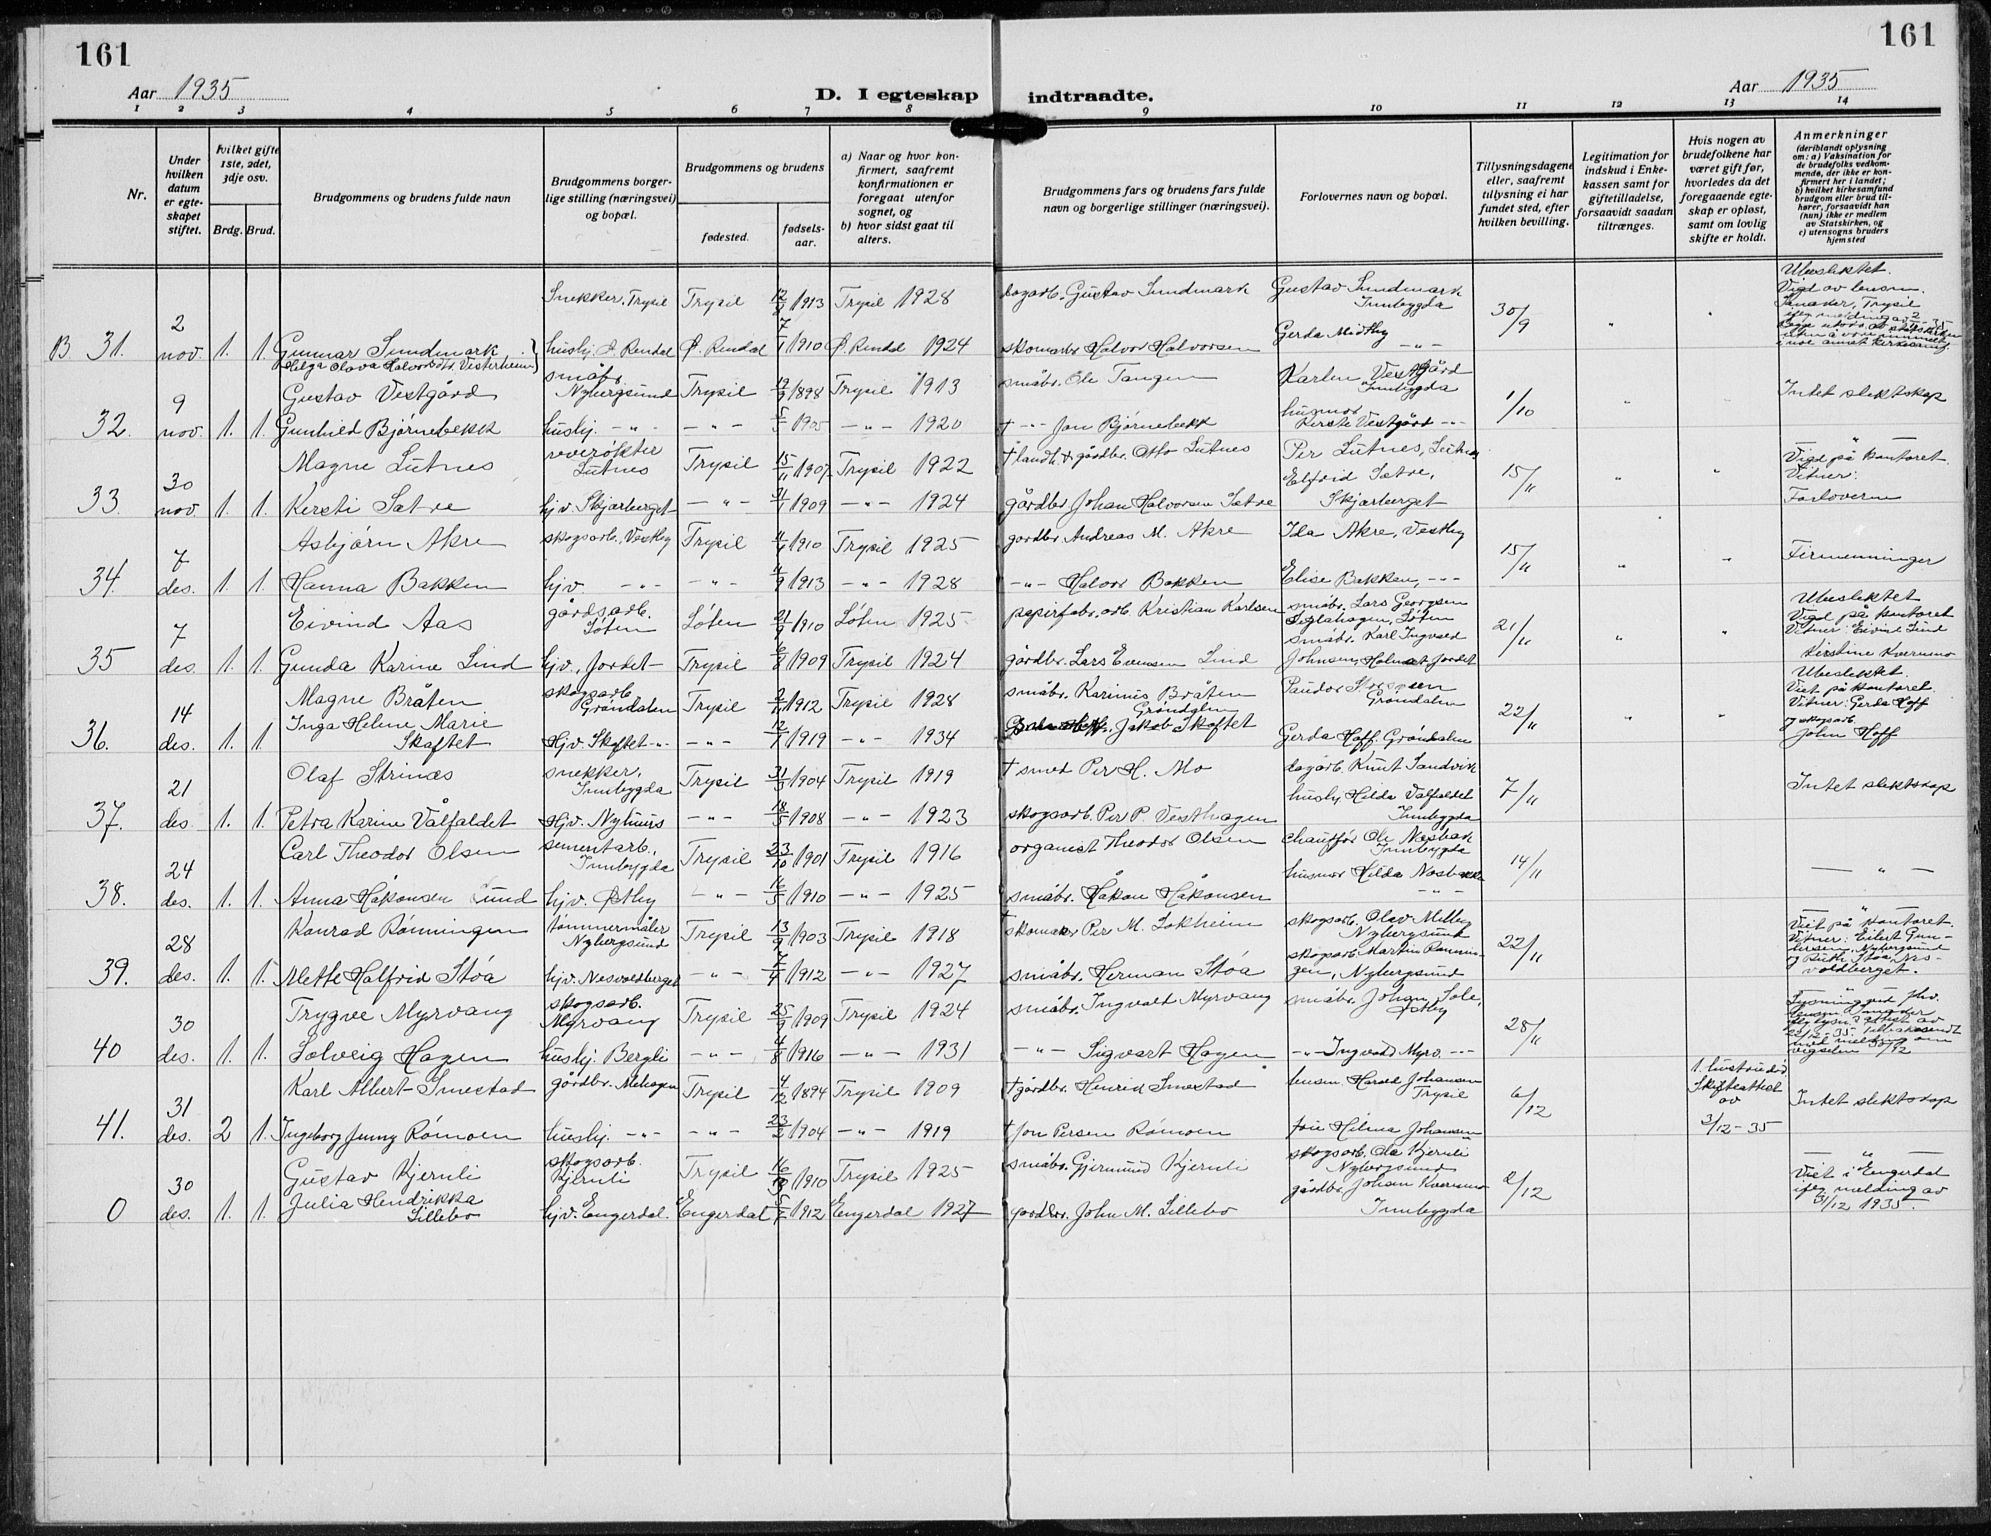 161
161
Aar 1935
D. I egteskap indtraadte.
Aar 1935
1 2 3 4 5 6 7 8 9 10 11 12 13 14
Nr.
Under hvilken datum er egteskapet stiftet.
hvilket gifte 1ste, 2det, 3dje osv.
Brdg. Brud.
Brudgommens og brudens fulde navn
Brudgommens borgerlige stilling (næringsvei) og bopæl.
Brudgommens og brudens
fødested.
fødselsaar.
a) Naar og hvor konfirmert, saafremt konfirmationen er foregaat utenfor sognet, og
b) hvor sidst gaat til alters.
Brudgommens fars og brudens fars fulde navn og borgerlige stillinger (næringsvei).
Forlovernes navn og bopæl.
Tillysningsdagene eller, saafremt tillysning ei har fundet sted, efter hvilken bevilling.
Legitimation for indskud i Enkekassen samt for giftetilladelse, forsaavidt saadan tiltrænges.
Hvis nogen av brudefolkene har været gift før, hvorledes da det foregaaende egteskap er opløst, samt om lovlig skifte er holdt.
Anmerkninger
(deriblandt oplysning om: a) Vaksination for de brudefolks vedkommende, der ikke er konfirmert her i landet; b) hvilket kirkesamfund brudgom eller brud tilhører, forsaavidt han (hun) ikke er medlem av Statskirken, og c) utensogns bruders hjemsted
B 31. 2 nov. 1. 1. Gunnar Sundmark Snekker, Trysil Trysil 12/8 1913 Trysil 1928 dagarb. Gustav Sundmark Gustav Sundmark Innbygda 30/9 Ubeslektet.
Helga Olava Halvorsdtr. Vesterheim husbj. Ø. Rendal Ø. Rendal 7/1 1910 Ø. Rendal 1924 skomaker Halvor Halvorsen Gerda Midtby
32. 9 nov. 1. 1. Gustav Vestgård småbr. Nybergsund Trysil 1898 Trysil 1913 småbr. Ole Tangen Karlen Vestgård Innbygda 1/10 Intet slektskap
Gunhild Bjørnebekk husbj. -"- -"- -"- 1920 † -"- Jon Bjørnebekk husmor Kersti Vestgård -"-
33. 30 nov. 1. 1. Magne Lutnes Lutnes Trysil 15/11 1907 Trysil 1922 † landh. & gårdbr. Otto Lutnes Per Lutnes, Lutnes 15/11 Vigd på kontoret. Vitner:
Kersti Sætre hjv. Skjærberget -"- 1909 -"- 1924 gårdbr. Johan Halvorsen Sætre Elfrid Sætre, Skjærberget Forloverne
34. 7 des. 1. 1. Asbjørn Akre skogsarb., Vestby Trysil 1910 Trysil 1925 gårdbr. Andreas M. Akre Ida Akre, Vestby 15/11 Firmenninger
Hanna Bakken hjv. -"- -"- 4/9 1913 -"- 1928 -"- Halvor Bakken Elise Bakken, -"-
35 7 des. 1. 1. Eivind Aas gårdsarb. Løten Løten 21/9 1910 Løten 1925 papirfabr. arb. Kristian Karlsen småbr. Lars Georgsen Løten 21/11 Ubeslektet Vigd på kontoret Vitner: Eivind Lund
Gunda Karine Lind hjv., Jordet Trysil 6/8 1909 Trysil 1924 gårdbr. Lars Evensen Lind småbr. Karl Ingvald Johnsen, Jordet Kristine Kvernmo
36. 14 des. 1. 1 Magne Bråten skogsarb. Grøndalen Trysil 2/11 1912 Trysil 1928 småbr. Karinius Bråten Grøndalen Grøndalen 22/11 Ubeslektet. Viet på kontoret. Vitner: Gerda Hoff
Inga Helene Marie Skaftet Hjv. Skaftet -"- -"- 12/1 1919 -"- 1934 Jakob Skaftet Gerda Hoff. Grøndalen og skogsarb. John Hoff
37. 21 des 1. 1. Olaf Strinæs snekker, Innbygda Trysil 31/3 1904 Trysil 1919 † smed Per H. Mo dagarb. Knut Sandvik 7/11 Intet slektskap
Petra Karine Våfaldet Hjv. Nyhuus -"- 18/5 1908 -"- 1923 skogsarb. Per P. Vesthagen husby. Hilda Våfaldet Innbygda
38. 24 des. 1. 1. Carl Theodor Olsen sementarb., Innbygda Trysil 23/10 1901 Trysil 1916 organist Theodor Olsen chauffør Ole Nesbakk Innbygda 14/11 — " —
Anna Håkonsen Lund hjv. Østby -"- 16/5 1910 -"- 1925 småbr. Håkon Håkonsen husmor Hilda Nesbakk -"-
39. 28 des. 1. 1. Konrad Rønningen tømmermåler Nybergsund Trysil 13/9 1903 Trysil 1918 † skomaker Per M. Lokheim skogsarb. Olav Melby Nybergsund 22/11 Viet på kontoret. Vitner: Eilert Gundersen, Nybergsund
Mette Halfrid Støa hjv. Nesvoldberget -"- 7/4 1912 -"- 1927 småbr. Herman Støa skogsarb. Martin Rønningen, Nybergsund og Ruth Støa, Nesvoldberget.
40 30 des. 1. 1. Trygve Myrvang skogsarb. Myrvang Trysil 25/9 1909 Trysil 1924 småbr. Ingvald Myrvang småbr. Johan Sole, Østby 28/11
Solveig Hagen husbj. Bergli -"- 4/8 1916 -"- 1931 -"- Sigvart Hagen -"- Ingvald Myrv. -"-
41. 31 des. 2 1. Karl Albert Smestad gårdbr. Mehagen Trysil 4/12 1894 Trysil 1909 † gårdbr. Henrik Smestad lensm. Harald Johansen Trysil 6/12 1. hustru død. Skifteattest av 3/12-35 Intet slektskap
Ingeborg Jenny Rømoen husbj. -"- -"- 23/2 1904 -"- 1919 † Jon Persen Rømoen frue Hilma Johansen
0 30 des. 1. 1. Gustav Kjernli skogsarb. Kjernli Trysil 16/10 1910 Trysil 1925 småbr. Gjermund Kjernli skogsarb. Ole Kjernli Nybergsund 2/12 Viet i Engerdal iflg. melding av 31/12 1935.
Julia Hendrikka Lillebo hjv. Engerdal. Engerdal 5/7 1912 Engerdal 1927 gårdbr. John M. Lillebo gårdbr. Johan Kvernmo Innbygda